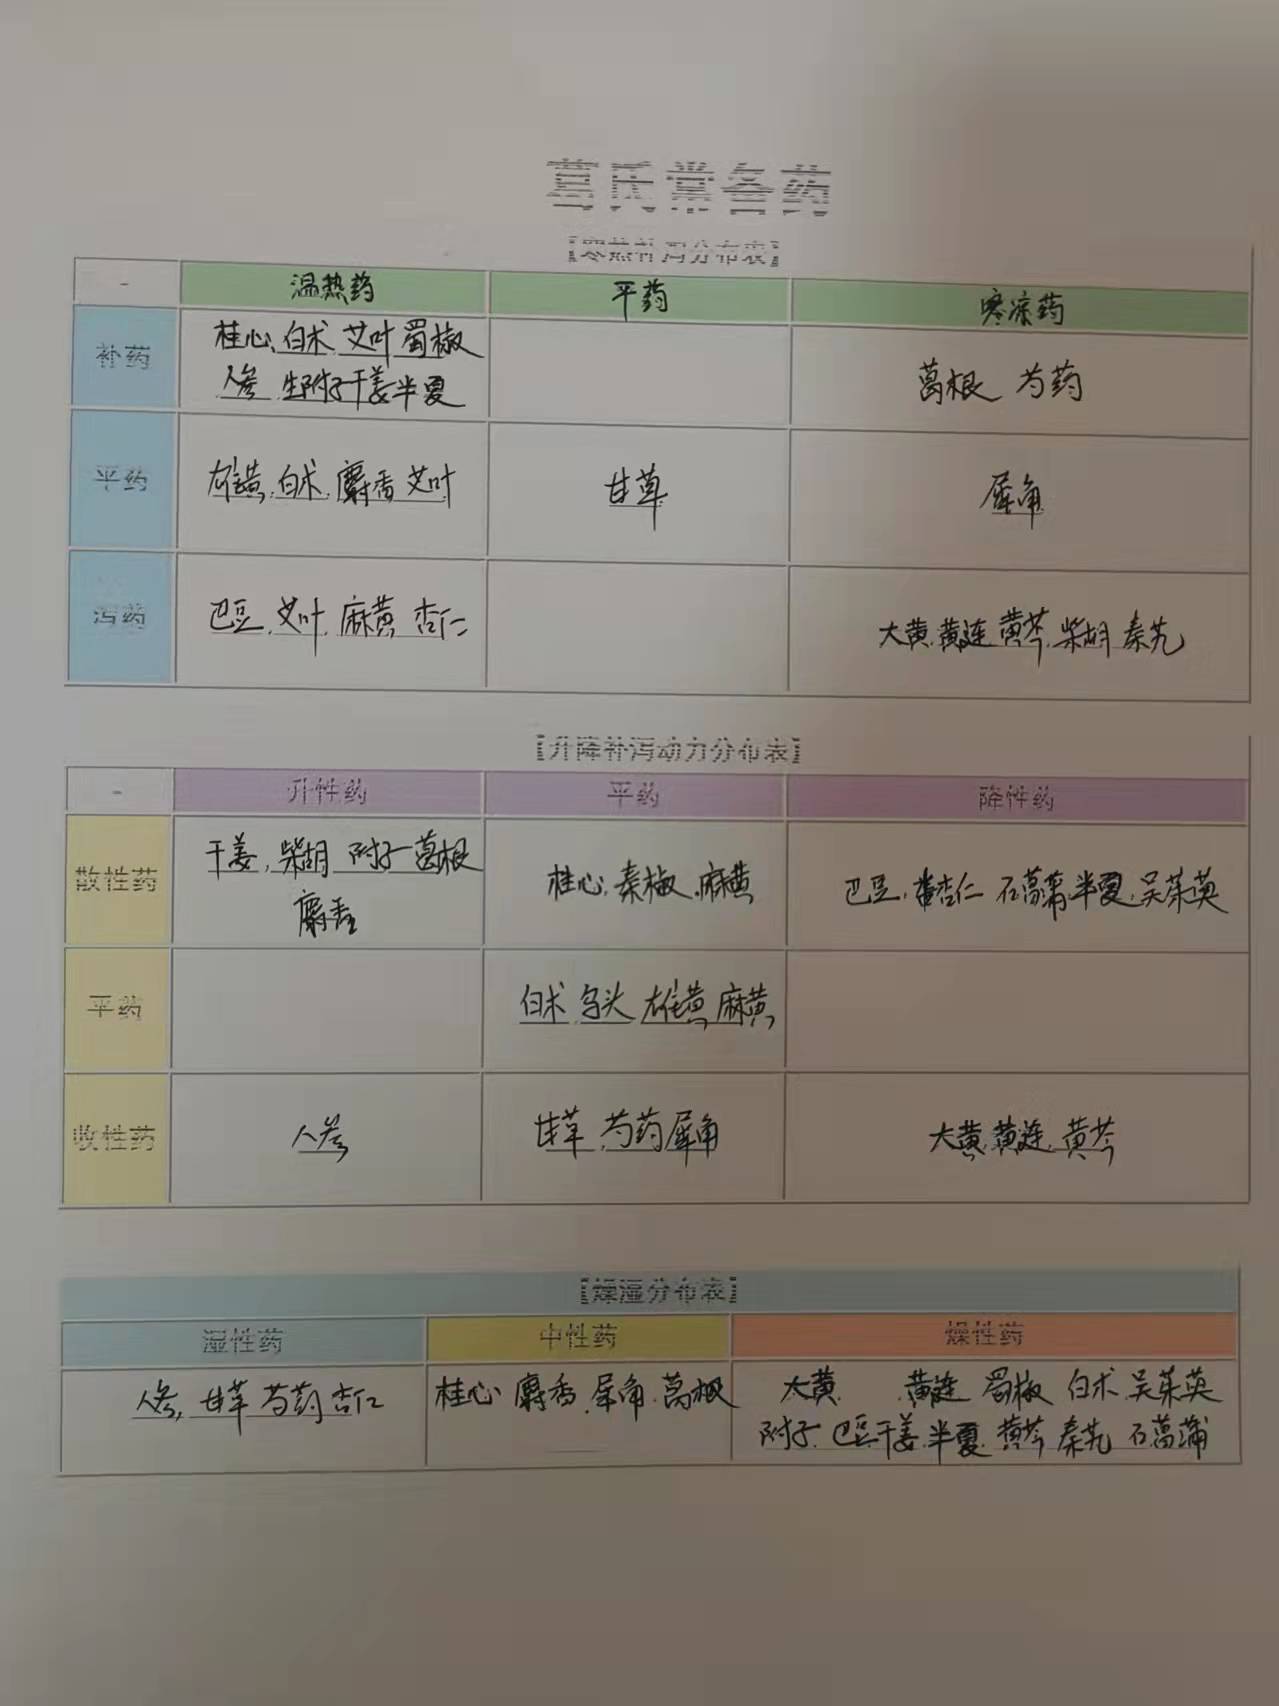 葛氏常备药
【寒热补泻分布表】
- 温热药 平药 寒凉药
补药
桂心、白术 艾叶 蜀椒
人参 生附子 干姜 半夏
葛根 芍药
平药 雄黄、白术、麝香 艾叶 甘草 犀角
泻药 巴豆、艾叶 麻黄 杏仁 大黄、黄连 黄芩、柴胡 秦艽
【升降补泻动力分布表】
- 升性药 平药 降性药
散性药
干姜,柴胡 附子 葛根
麝香
桂心、秦椒、麻黄
巴豆、杏仁 石菖蒲、半夏、吴茱萸
平药 白术 乌头 雄黄 麻黄
收性药 人参 甘草、芍药 犀角 大黄、黄连、黄芩
【燥湿分布表】
湿性药 中性药 燥性药
人参, 甘草 芍药 杏仁
桂心 麝香、犀角、葛根
大黄 黄连 蜀椒 白术 吴茱萸
附子、巴豆、干姜、半夏、黄芩 秦艽 石菖蒲